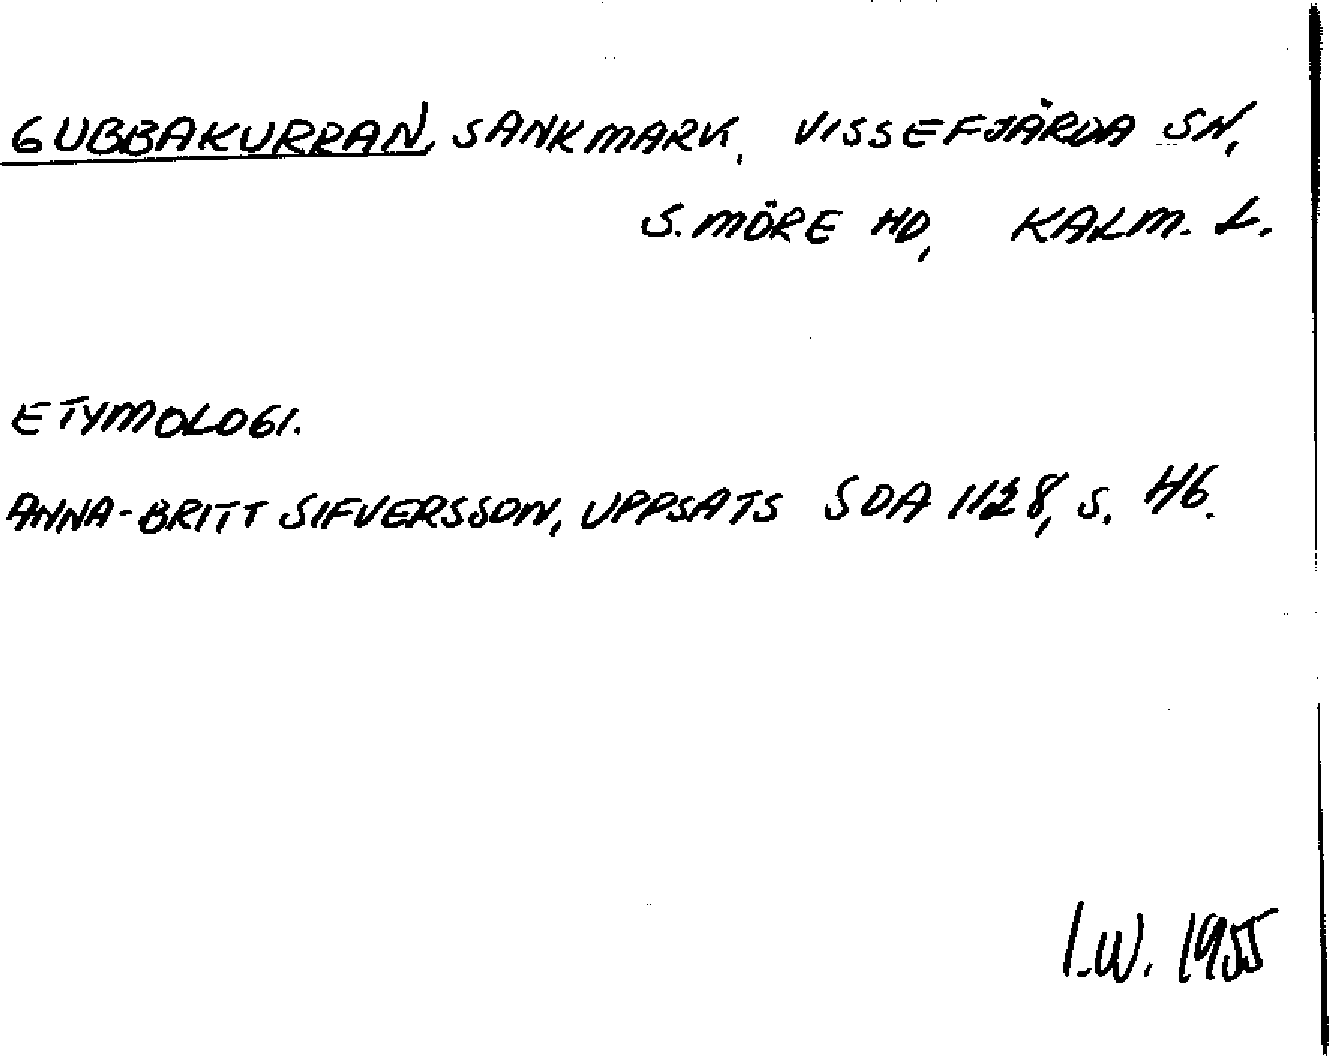 GUBBAKURRAN, SANKMARK, VISSEFJÄRDA SN,
S. MÖRE HD, KALM. L.
ETYMOLOGI.
ANNA-BRITT SIFVERSSON, UPPSATS SOA 1128, S. 46.
I.W. 1955